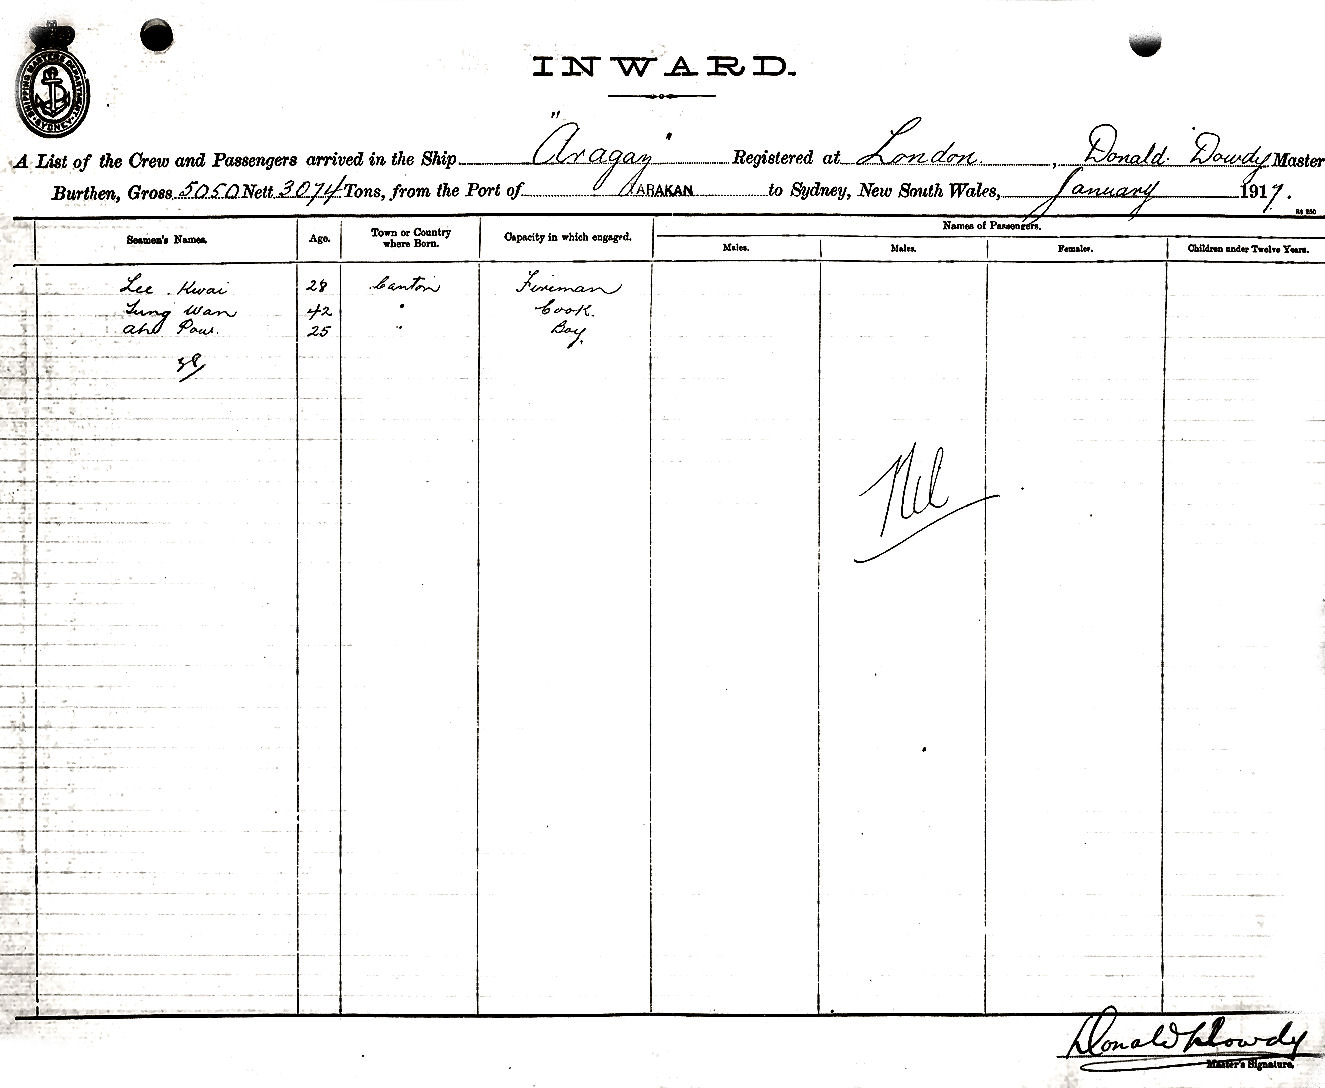 SHIPPING MASTERS DEPARTMENT SYDNEY
INWARD.
A List of the Crew and Passengers arrived in the Ship "Aragaz" Registered at London, Donald Dowdy Master
Burthen, Gross 5050 Nett 3074 Tons, from the Port of ARAKAN to Sydney, New South Wales, January 1917.
Names of Passengers.
Seamen's Names. Age. Town or Country where Born. Capacity in which engaged. Males. Males. Females. Children under Twelve Years.
Lee Kwai 28 Canton Fireman
Tung Wan 42 " Cook.
Ah Pow. 25 " Boy.
38
Nil
Donald Dowdy
Master's Signature.